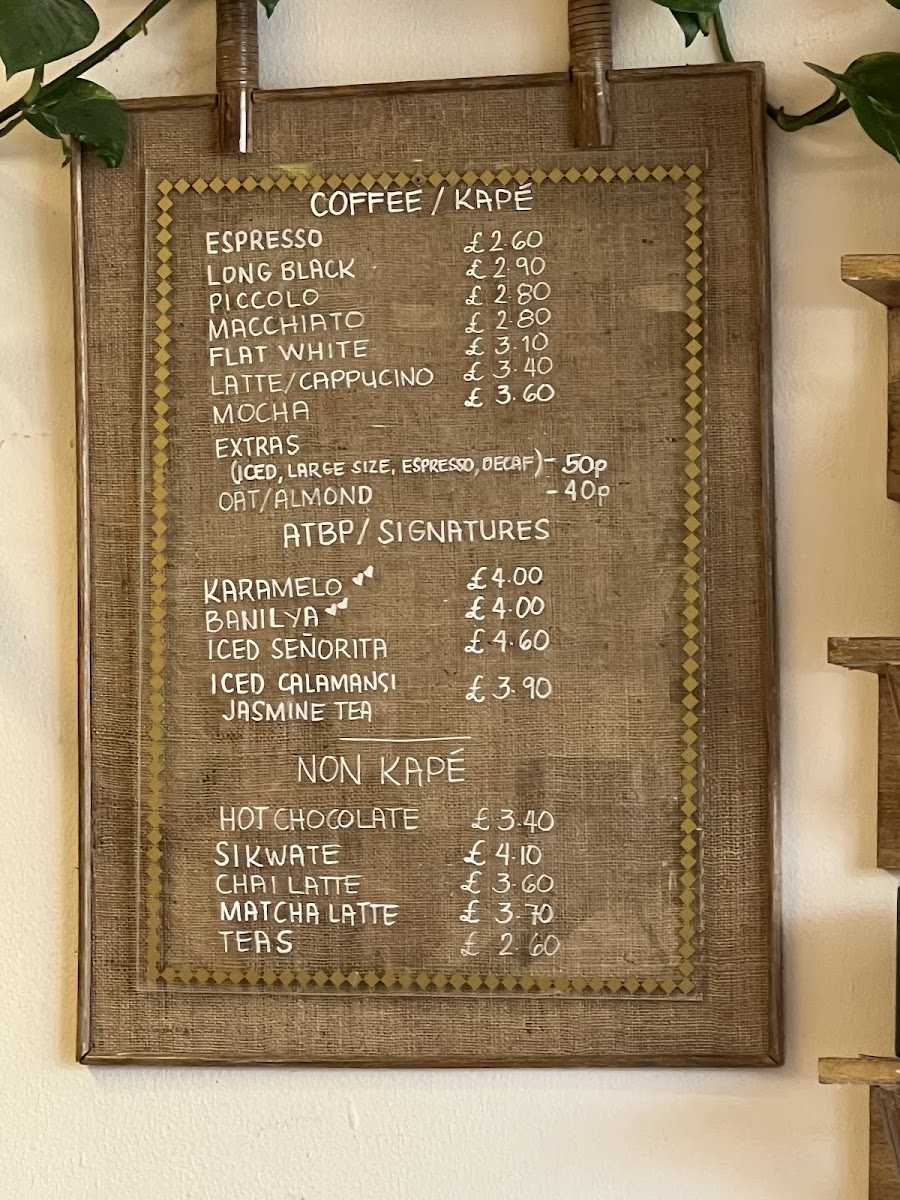 COFFEE / KAPÉ
ESPRESSO £2.60
LONG BLACK £2.90
PICCOLO £2.80
MACCHIATO £2.80
FLAT WHITE £3.10
LATTE/CAPPUCINO £3.40
MOCHA £3.60
EXTRAS
(ICED, LARGE SIZE, ESPRESSO, DECAF) - 50p
OAT/ALMOND - 40p
ATBP/SIGNATURES
KARAMELO £4.00
BANILYA £4.00
ICED SEÑORITA £4.60
ICED CALAMANSI £3.90
JASMINE TEA
NON KAPÉ
HOT CHOCOLATE £3.40
SIKWATE £4.10
CHAI LATTE £3.60
MATCHA LATTE £3.70
TEAS £2.60